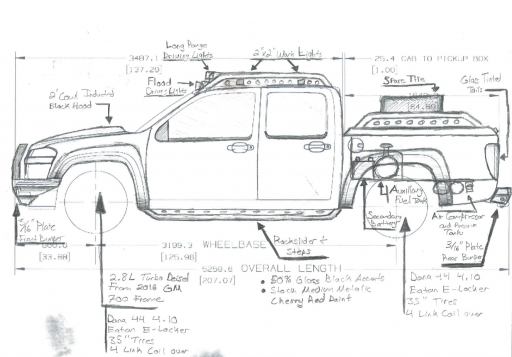 Long Range
Driving Lights
2"x2" Work Lights
3487.1
[137.29]
25.4 CAB TO PICKUP BOX
[1.00]
Flood
Driving Lights
Spare Tire
Glass Tinted
Tails
2" Cowl Inducted
Black Hood
[84.89]
Auxillary
Fuel Tank
Secondary
Battery
Air Compressor
and Reserve
Tanks
3/16" Plate
Front Bumper
3/16" Plate
Rear Bumper
[33.88]
3199.3 WHEELBASE
[125.98]
Rockslider &
Steps
OVERALL LENGTH
[207.07]
• 50% Gloss Black Accents
• Stock Medium Metalic
Cherry Red Paint
2.8L Turbo Deisel
From 2016 GM
700 Frame
Dana 44 4.10
Eaton E-Locker
35" Tires
4 Link Coil over
Dana 44 4.10
Eaton E-Locker
35" Tires
4 Link Coil over